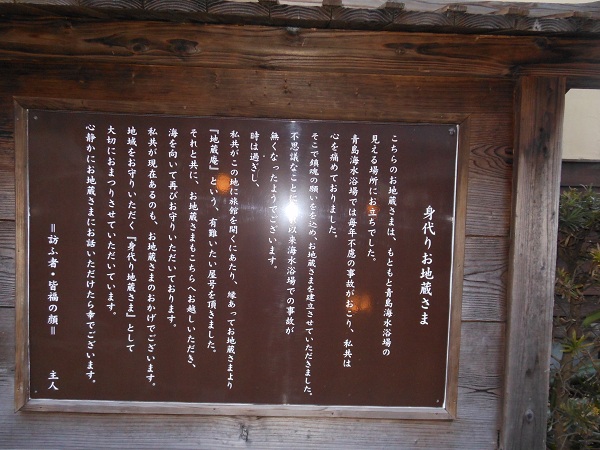 身代りお地蔵さま
こちらのお地蔵さまは、もともと青島海水浴場の
見える場所にお立ちでした。
青島海水浴場では毎年不慮の事故がおこり、私共は
心を痛めておりました。
そこで鎮魂の願いを込め、お地蔵さまを建立させていただきました。
不思議なことに 以来海水浴場での事故が
無くなったようでございます。
時は過ぎし、
私共がこの地に旅館を開くにあたり、縁あってお地蔵さまより
『地蔵庵』という、有難いたい屋号を頂きました。
それと共に、お地蔵さまもこちらへお越しいただき、
海を向いて再びお守りいただいております。
私共が現在あるのも、お地蔵さまのおかげでございます。
地域をお守りいただく『身代り地蔵さま』として
大切におまつりさせていただいています。
心静かにお地蔵さまにお話いただけたら幸でございます。
＝訪ふ者・皆福の顔＝ 主人